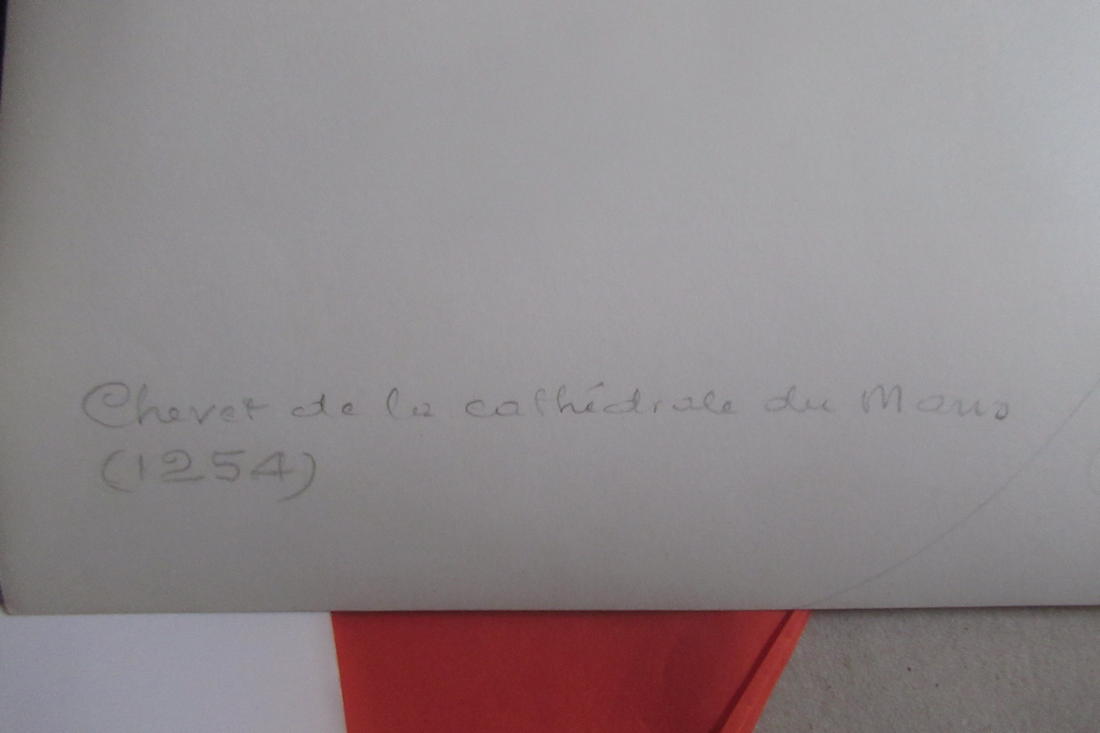 Chevet de la cathédrale du Mans
(1254)